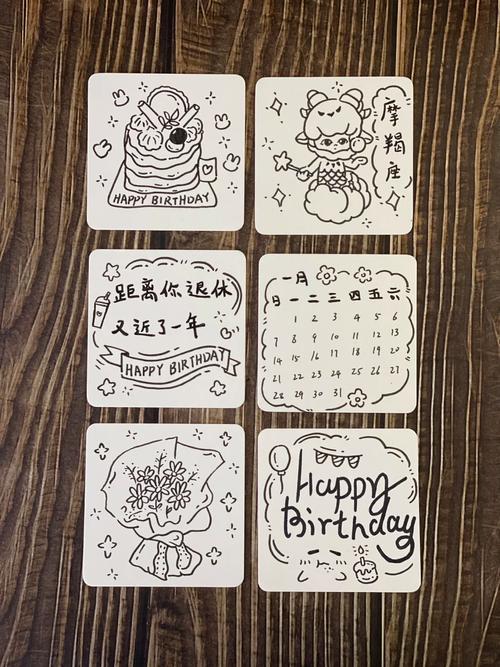 HAPPY BIRTHDAY
摩羯座
距离你退休
又近了一年
HAPPY BIRTHDAY
一月
日 一 二 三 四 五 六
1 2 3 4 5 6
7 8 9 10 11 12 13
14 15 16 17 18 19 20
21 22 23 24 25 26 27
28 29 30 31
Happy
Birthday